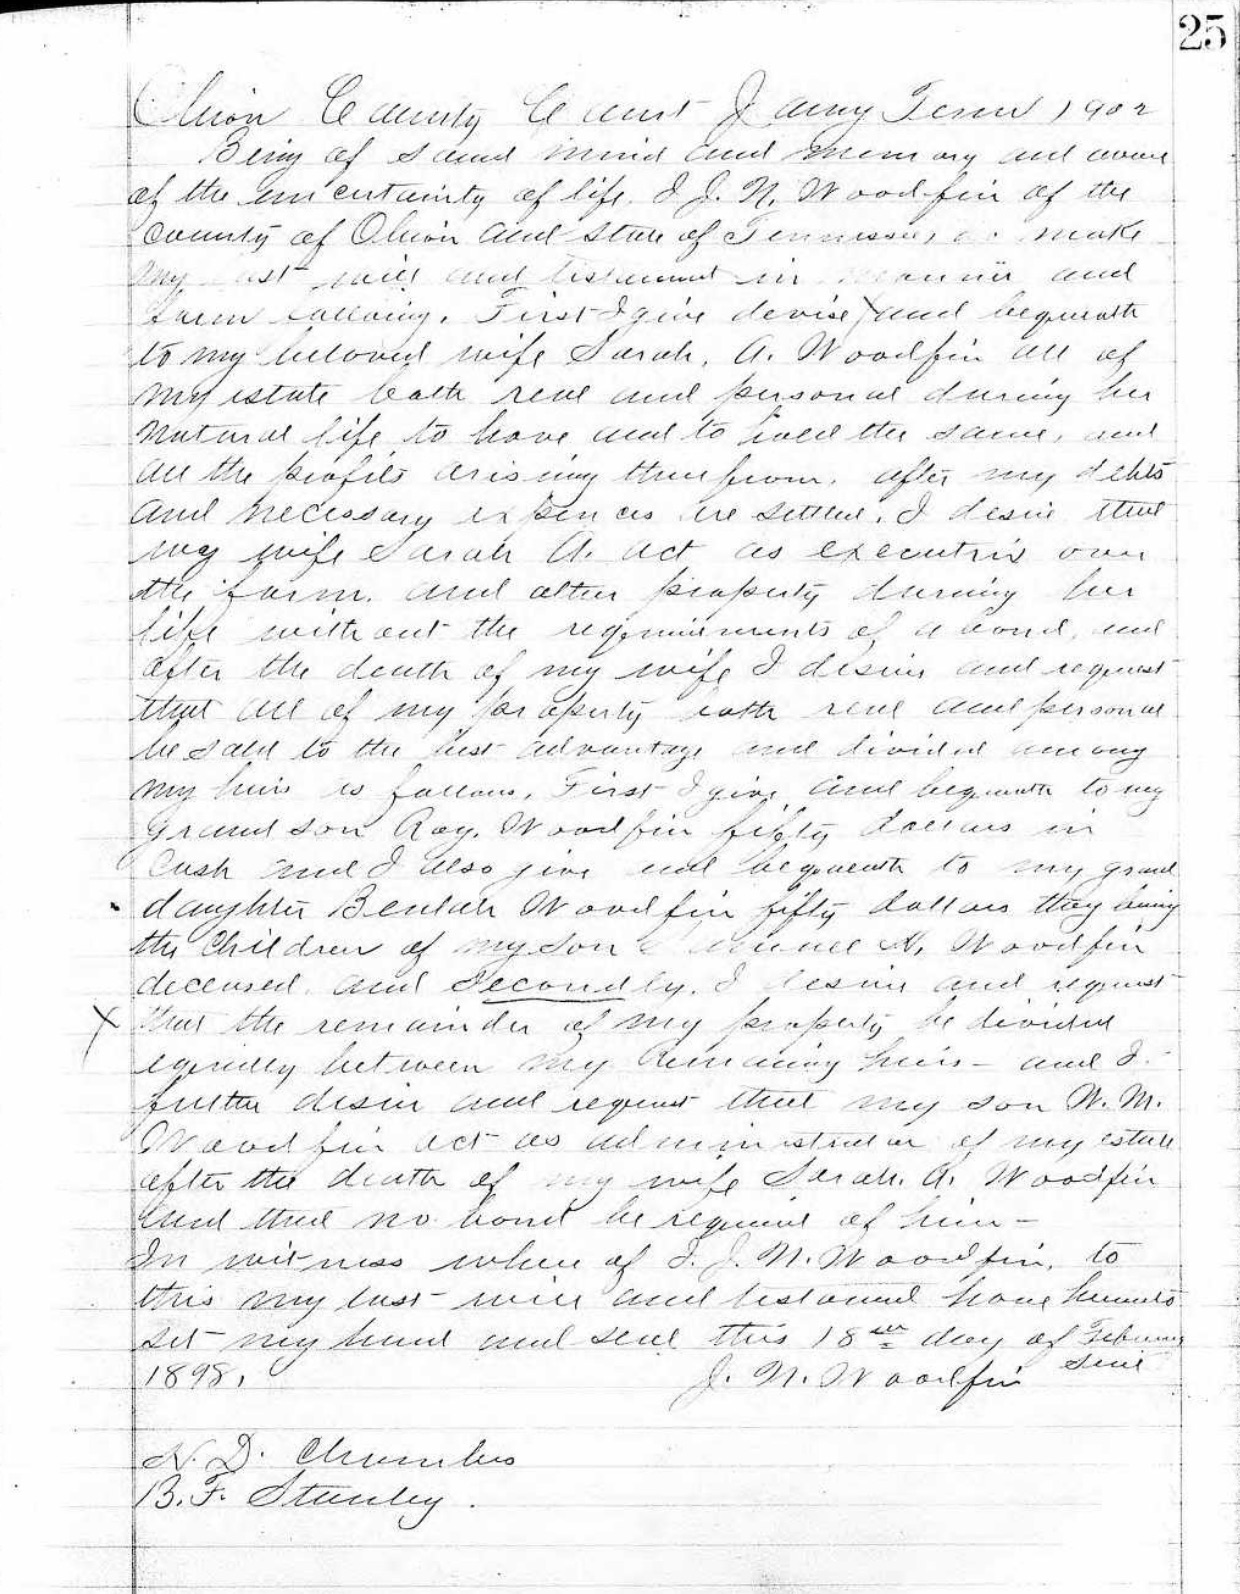 25
Obion County Court January Term 1902
Being of sound mind and memory and aware
of the uncertainty of life. I J. N. Woodfin of the
County of Obion and State of Tennessee, do make
my last will and testament in manner and
form following. First I give devise and bequeath
to my beloved wife Sarah. A. Woodfin all of
my estate both real and personal during her
natural life, to have and to hold the same, and
all the profits arising therefrom. after my debts
and necessary expences are settled. I desire that
my wife Sarah A. act as executrix over
the farm. and other property during her
life without the requirements of a bond. and
after the death of my wife I desire and request
that all of my property both real and personal
be sold to the best advantage and divided among
my heirs as follows. First I give and bequeath to my
grand son Roy. Woodfin fifty dollars in
Cash and I also give and bequeath to my grand
daughter Beulah Woodfin fifty dollars they being
the Children of my son N. Woodfin
deceased. and Secondly. I desire and request
X that the remainder of my property be divided
equally between my Remaining heirs - and I
further desire and request that my son W. M.
Woodfin act as administrator of my estate
after the death of my wife Sarah. A. Woodfin
and that no bond be required of him -
In witness where of I. J. N. Woodfin, to
this my last will and testament have hereunto
set my hand and seal this 18th day of February
1898. J. N. Woodfin Seal
N. D.
B. F. Stanley.